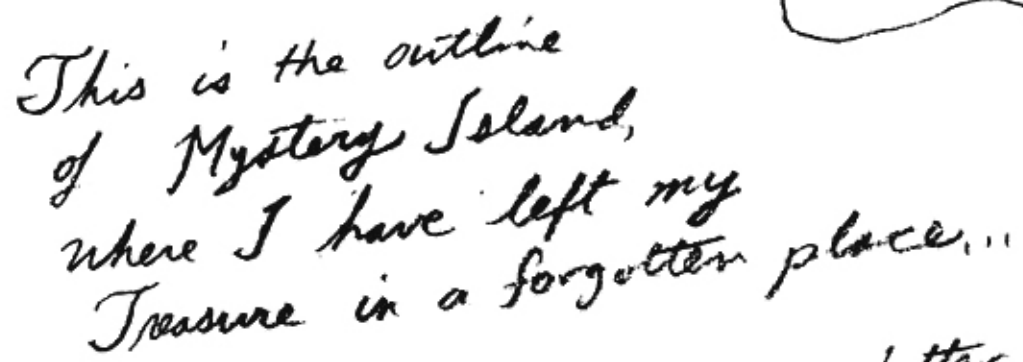 This is the outline
of Mystery Island,
where I have left my
Treasure in a forgotten place...